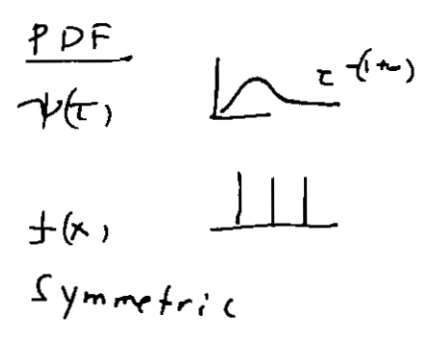 PDF
ψ(τ)
τ -(1+α)
f(x)
Symmetric